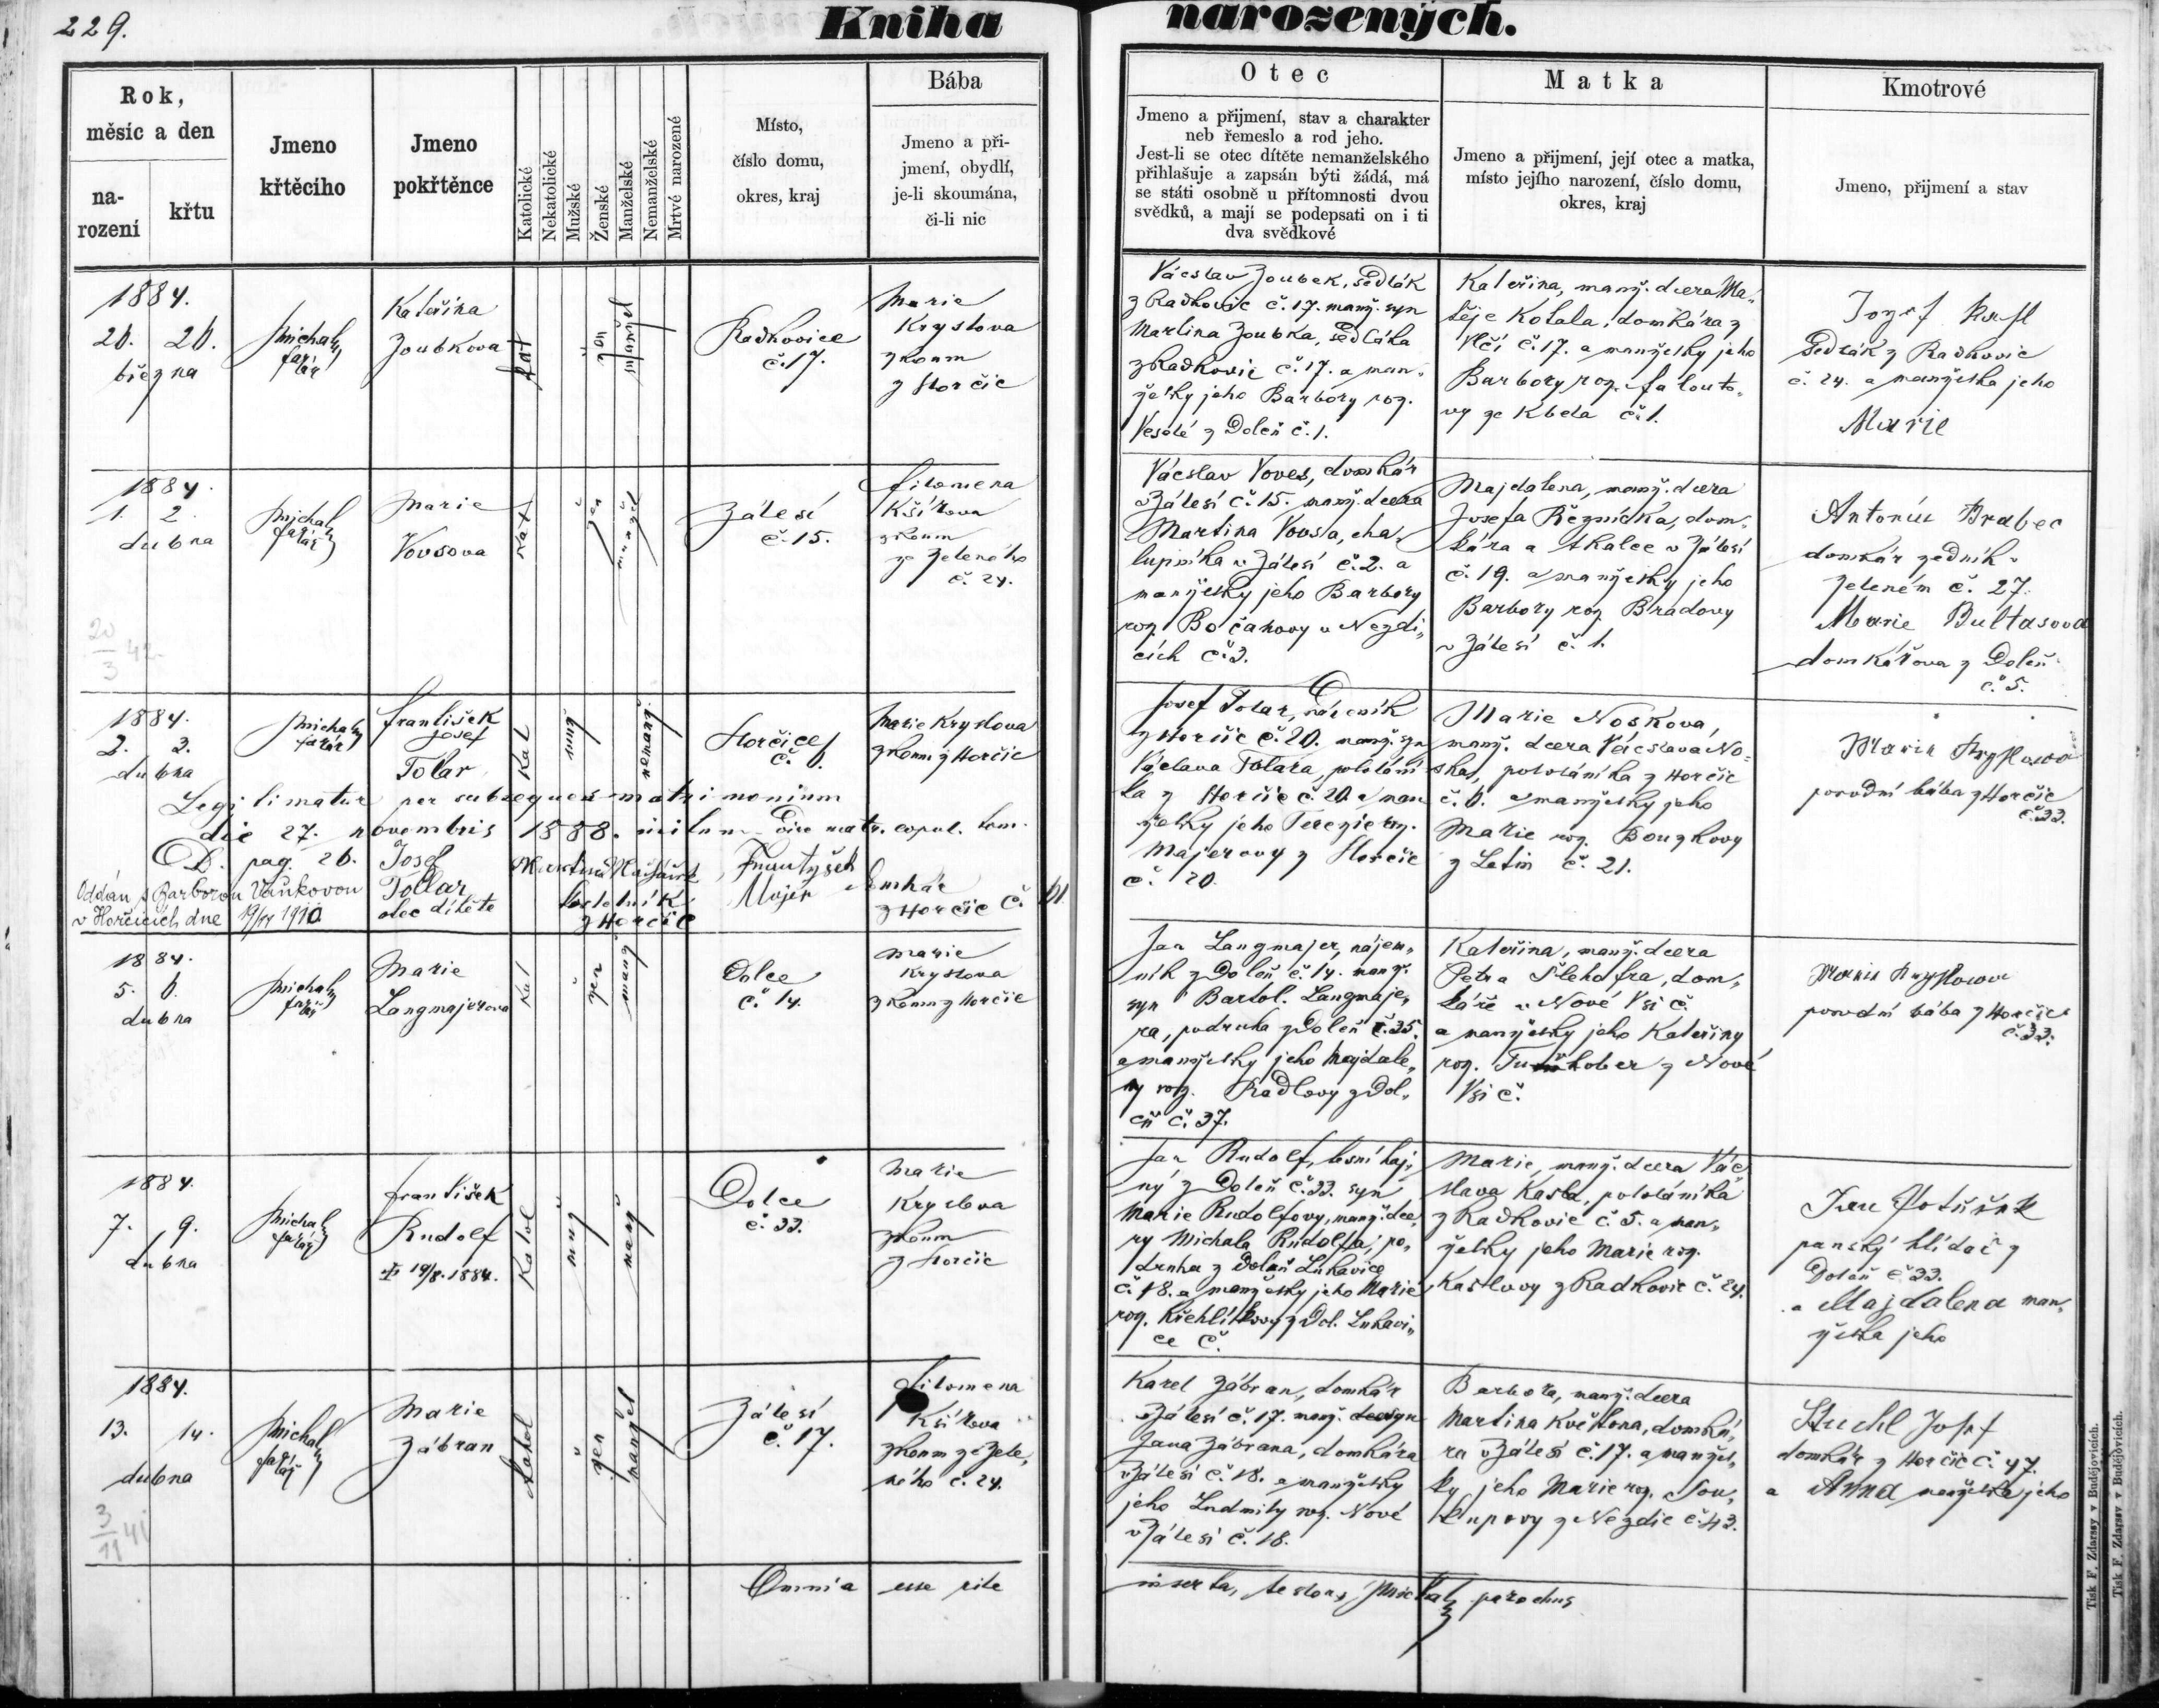 229.
Kniha
narozených.
Rok,
měsíc a den
na-
rození
křtu
Jmeno
křtěcího
Jmeno
pokřtěnce
Katolické
Nekatolické
Mužské
Ženské
Manželské
Nemanželské
Mrtvé narozené
Místo,
číslo domu,
okres, kraj
Bába
Jmeno a při-
jmení, obydlí,
je-li skoumána,
či-li nic
Otec
Jmeno a přijmení, stav a charakter
neb řemeslo a rod jeho.
Jest-li se otec dítěte nemanželského
přihlašuje a zapsán býti žádá, má
se státi osobně u přítomnosti dvou
svědků, a mají se podepsati on i ti
dva svědkové
Matka
Jmeno a přijmení, její otec a matka,
místo jejího narození, číslo domu,
okres, kraj
Kmotrové
Jmeno, přijmení a stav
1884.
26. 26.
března
Michal
farář
Kateřina
Zoubkova
kat
žen
manžel
Radkovice
č. 17.
Marie
Krystova
zkoum
z Horčic
Vácslav Zoubek, sedlák
z Radkovic č. 17. manž. syn
Martina Zoubka, sedláka
z Radkovic č. 17. a man„
želky jeho Barbory roz.
Veselé z Doleň č. 1.
Kateřina, manž. dcera Ma„
těje Kotala, domkára z
Vlčí č. 17. a manželky jeho
Barbory roz.
vy ze Kbela č. 1.
Jozef
Sedlák z Radkovic
č. 24. a manželka jeho
Marie
1884.
1. 2.
dubna
Michal
farář
Marie
Vovsova
kat
žen
manžel
Zálesí
č. 15.
Filomena
Kšírova
zkoum
ze Zeleného
č. 24.
Vácslav Voves, domkár
v Zálesí č. 15. manž. dcera
Martina Vovsa, cha„
lupníka v Zálesí č. 2. a
manželky jeho Barbory
roz. Bočanovy v Nezdi„
cích č. 3.
Majdalena, manž. dcera
Josefa Řezníčka, dom„
kára a tkalce v Zálesí
č. 19. a manželky jeho
Barbory roz. Bradovy
v Zálesí č. 1.
Antonín Brabec
domkár zedník v
Zeleném č. 27.
Marie Bultasova
domkářova z Doleň
č. 5.
20
3 42
1884.
2. 3.
dubna
Michal
farář
František
Josef
Tolar
kat
muž
nemanž.
Horčice
č. 6.
Marie Krystova
zkoum z Horčic
Josef Tolar,
z Horčic č. 20. manž. syn
Václava Tolara, pololání
ka z Horčic č. 20. a man
želky jeho Terezie roz.
Majerovy z Horčic
č. 20.
Marie Noskova,
manž. dcera Vácslava No„
ska, pololáníka z Horčic
č. 6. a manželky jeho
Marie roz. Bouzkovy
z Letin č. 21.
Marie Krystowa
porodní bába z Horčic
č. 33.
Legitimatur per subsequens matrimonium
die 27. novembris 1888. initum. Vide matr. copul. tom.
D. pag. 26.
Josef
Tollar
otec dítěte
Martin
z Horčic
Frantyšek
Majer domkár
z Horčic č. 61
Oddán s Barborou Vaňkovou
v Horčicích dne 19/IV 1910
1884.
5. 6.
dubna
Michal
farář
Marie
Langmajerova
kat
žen
manž
Dolce
č. 14.
Marie
Krystova
zkoum z Horčic
Jan Langmajer, nájem„
ník z Doleň č. 14. manž.
syn Bartol. Langmaje„
ra, podruha z Doleň č. 35.
a manželky jeho Majdale„
ny roz. Radlovy z Dol„
eň č. 37.
Kateřina, manž. dcera
Petra Šlehofra, dom„
káře v Nové Vsi č.
a manželky jeho Kateřiny
roz. z Nové
Vsi č.
Marie Krystowa
porodní bába z Horčic
č. 33.
1884.
7. 9.
dubna
Michal
farář
František
Rudolf
19/8. 1884.
Katol
muž
manž
Dolce
č. 33.
Marie
Krystova
zkoum
z Horčic
Jan Rudolf, lesní haj„
ný z Doleň č. 33. syn
Marie Rudolfovy, manž. dce„
ry Michala Rudolfa, po„
druha z Dolan Lukavice
č. 18. a manželky jeho Marie
roz. z Dol. Lukavi„
ce č.
Marie, manž. dcera Vác„
slava Kasla, pololáníka
z Radkovic č. 5. a man„
želky jeho Marie roz.
Kaslovy z Radkovic č. 24.
Jan
panský hlídač z
Doleň č. 33.
a Majdalena man„
želka jeho
1884.
13. 14.
dubna
Michal
farář
Marie
Zábran
katol
žen
manžel
Zálesí
č. 17.
Filomena
Kšírova
zkoum ze Zele„
ného č. 24.
Karel Zábran, domkár
v Zálesí č. 17. manž. syn
Jana Zábrana, domkára
v Zálesí č. 18. a manželky
jeho Ludmily roz. Nové
v Zálesí č. 18.
Barbora, manž. dcera
Martina Květona, domká„
ra v Zálesí č. 17. a manžel„
ky jeho Marie roz. Sou„
kupovy z Nezdic č. 43.
Stuchl Josef
domkár z Horčic č. 47.
a Anna manželka jeho
3
11 41
Omnia esse rite
inserta, testor, Michal, parochus
Tisk F. Zdarssy v Budějovicích.
Tisk F. Zdarssy v Budějovicích.